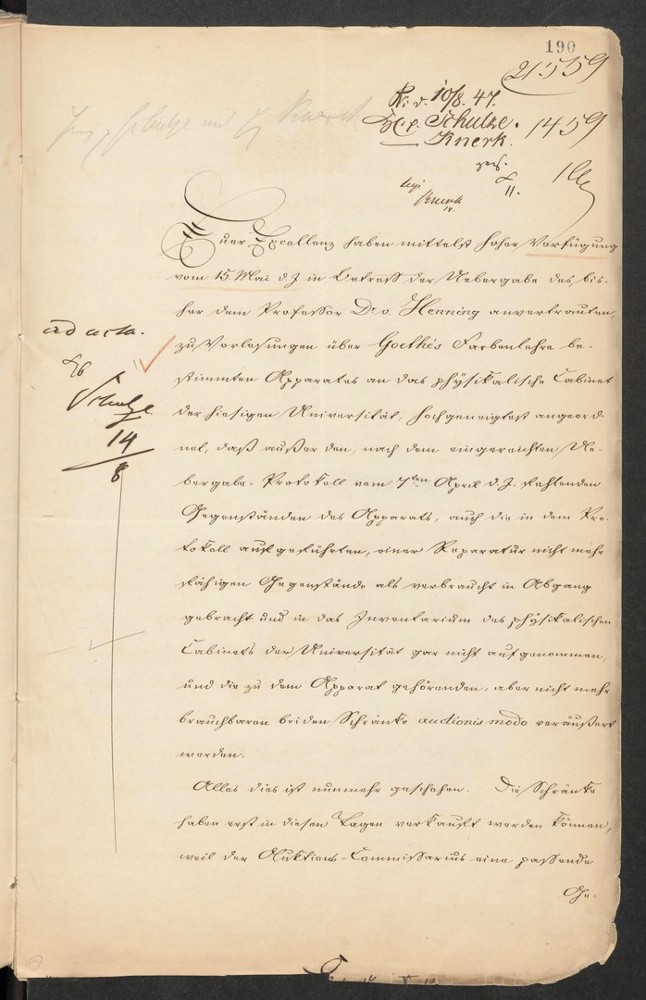 190
21559
10/8. 47.
Schulze. 1459
Knerk.
11.
Knerk
Euer Excellenz haben mittelst hoher Verfügung
vom 15. Mai d. J. in Betreff der Uebergabe des bis-
her dem Professor Dr. v. Henning anvertrauten,
zu Vorlesungen über Goethe's Farbenlehre be-
stimmten Apparates an das physikalische Cabinet
der hiesigen Universität, hochgeneigtest angeord-
net, daß außer den, nach dem eingereichten Ue-
bergabe-Protokoll vom 7ten April d. J. fehlenden
Gegenständen des Apparats, auch die in dem Pro-
tokoll aufgeführten, einer Reparatur nicht mehr
fähigen Gegenstände als verbraucht in Abgang
gebracht und in das Inventarium des physikalischen
Cabinets der Universität gar nicht aufgenommen,
und die zu dem Apparat gehörenden, aber nicht mehr
brauchbaren beiden Schränke auctionis modo veräußert
werden.
Alles dies ist nunmehr geschehen. Die Schränke
haben erst in diesen Tagen verkauft werden können,
weil der Auktions-Commissarius eine passende
Ge-
ad acta.
Schulze
14
8